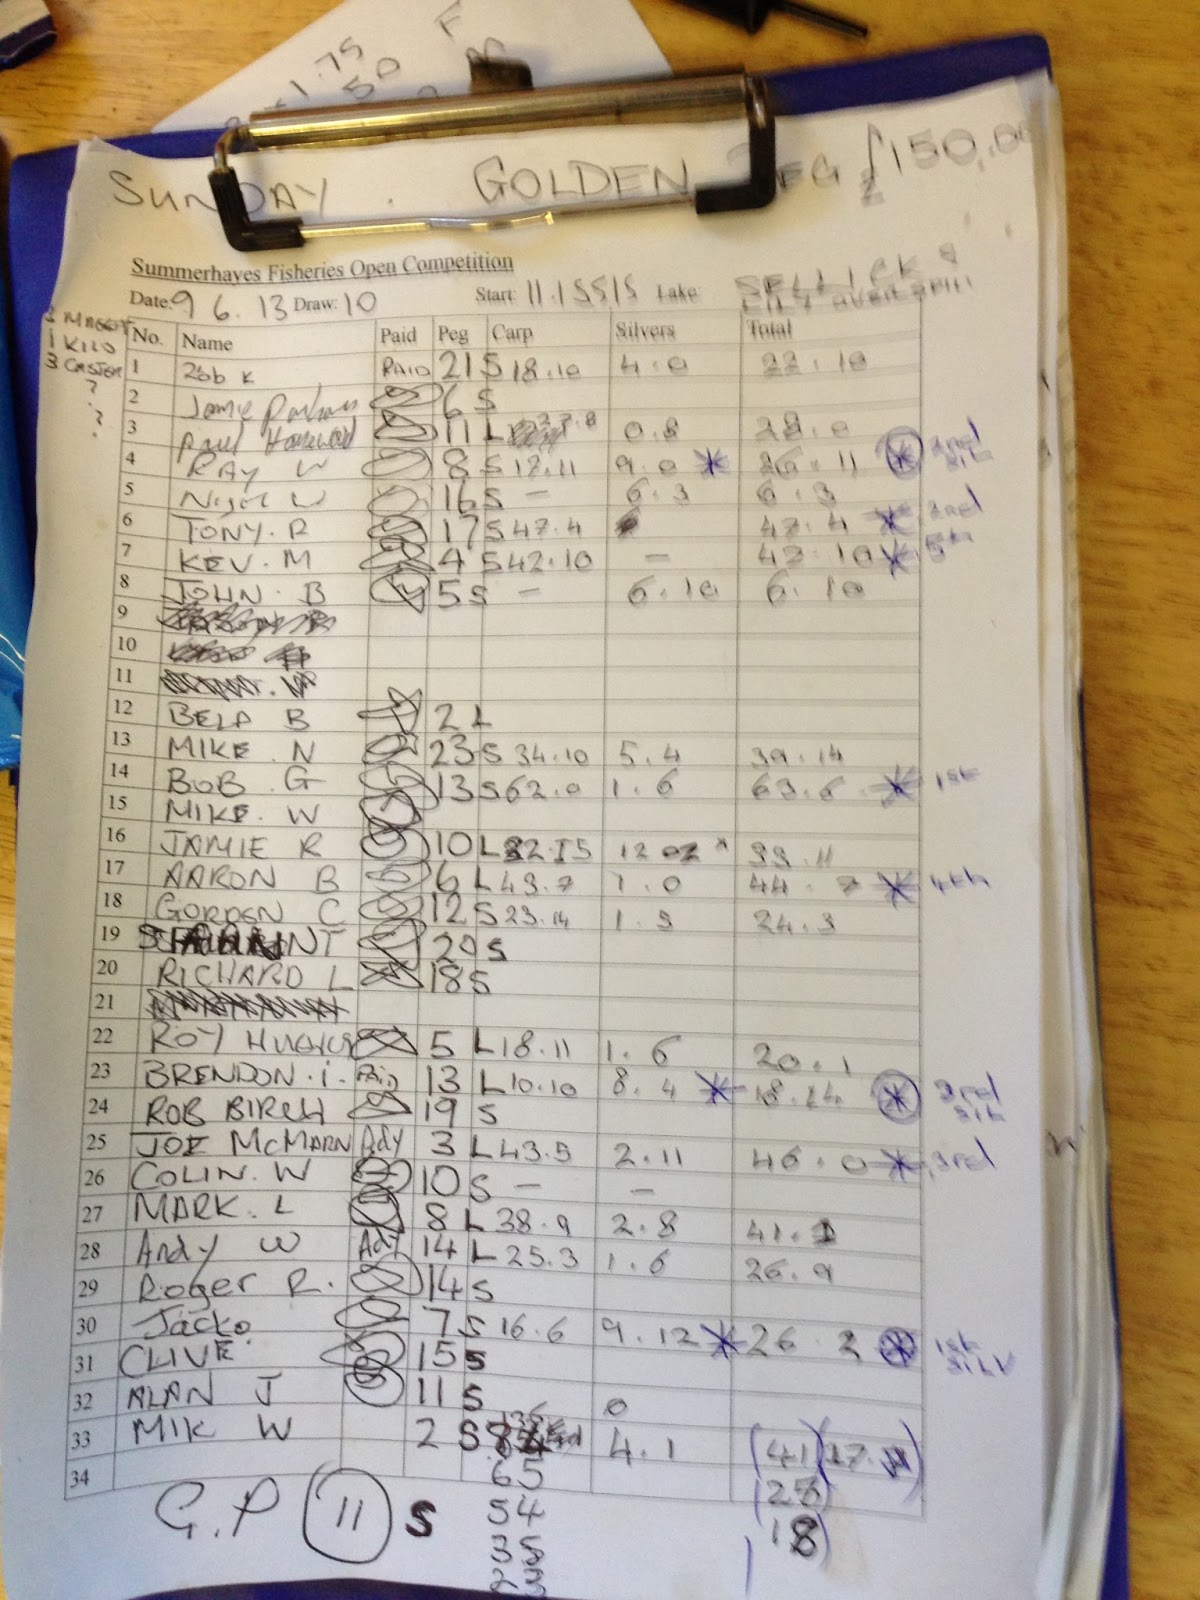 1.75
50
SUNDAY. GOLDEN PEG £150.00
Summerhayes Fisheries Open Competition
Date: 9 6. 13 Draw: 10 Start: 11.15 Lake: SELLICKS
MAGGOT
1 KILO
3 CASTER
?
?
No. Name Paid Peg Carp Silvers Total
1 PAID 21 S 18.10 4.0 22.10
2 Jamie 6 S
3 Paul 11 L 0.8 28.0
4 RAY W 8 S 9.0 * 26.11 * 2nd
5 Nigel W 16 S - 6.3 6.3
6 TONY. R 17 S 47.4 47.4 * 2nd
7 KEV. M 4 S 42.10 - 42.10 * 5th
8 JOHN. B 5 S - 6.10 6.10
9
10
11
12 B 2 L
13 MIKE. N 23 S 34.10 5.4 39.14
14 BOB. G 13 S 62.0 1.6 63.6 * 1st
15 MIKE. W
16 JAMIE R 10 L 12 oz 33.11
17 AARON B 6 L 43.7 1.0 44.7 * 4th
18 GORDON C 12 S 23.14 24.3
19 20 S
20 RICHARD L 18 S
21
22 ROY 5 L 18.11 1.6 20.1
23 BRENDON. i. 13 L 10.10 8.4 * 18.14 * 3rd
24 ROB BIRCH 19 S
25 JOE McMARN Ady 3 L 43.5 2.11 46.0 * 3rd
26 COLIN. W 10 S - -
27 MARK. L 8 L 38.9 2.8 41.1
28 Andy W Ady 14 L 25.3 1.6 26.9
29 Roger R. 14 S
30 Jacko 7 S 16.6 9.12 * 26.2 * 1st SILV
31 CLIVE 15 S
32 ALAN J 11 S 0
33 MIK W 2 S 4.1 (41)
34 65 (28)
G.P 11 S 54 18)